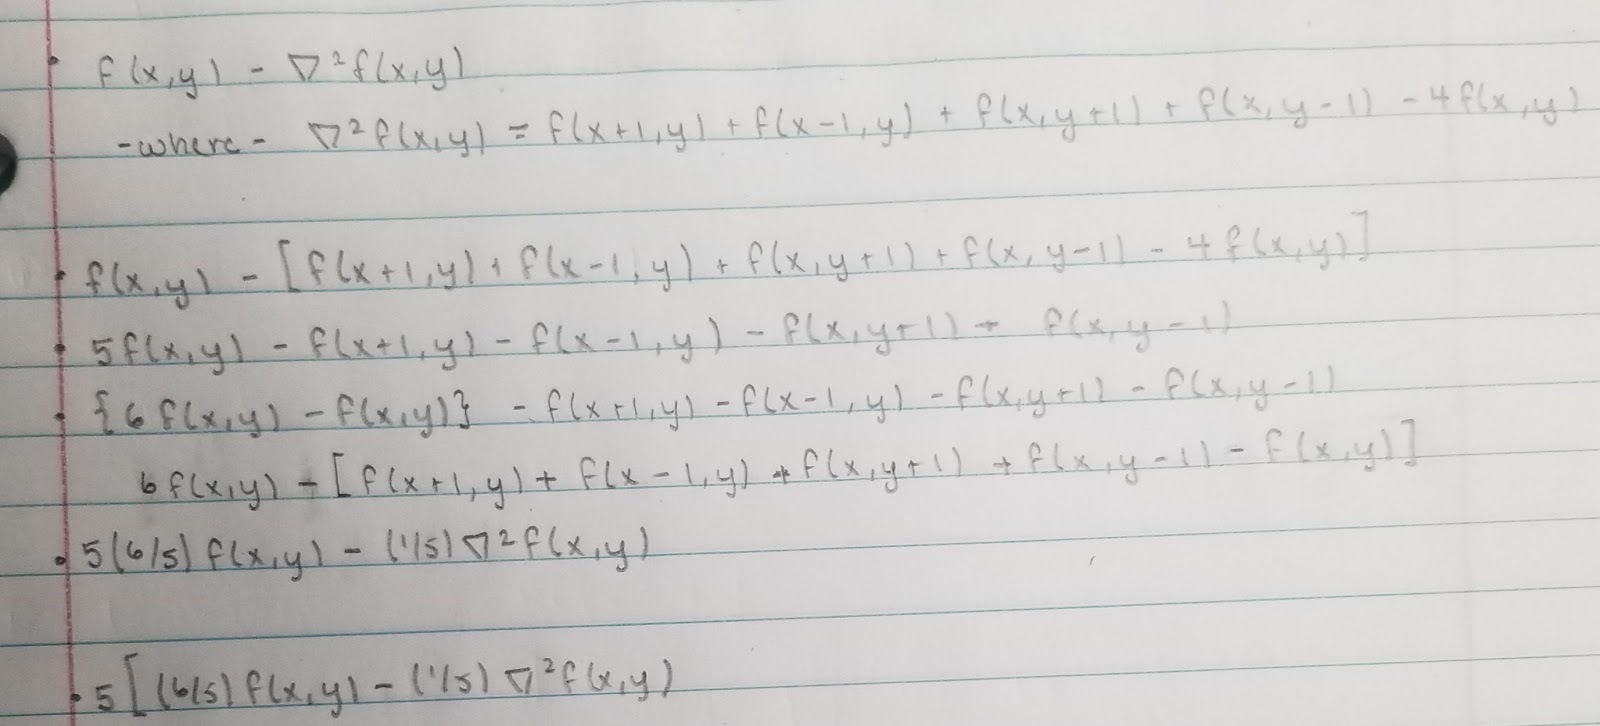 • f(x,y) - ∇²f(x,y)
-where- ∇²f(x,y) = f(x+1,y) + f(x-1,y) + f(x,y+1) + f(x,y-1) - 4f(x,y)
• f(x,y) - [f(x+1,y) + f(x-1,y) + f(x,y+1) + f(x,y-1) - 4f(x,y)]
• 5f(x,y) - f(x+1,y) - f(x-1,y) - f(x,y+1) - f(x,y-1)
• {6f(x,y) - f(x,y)} - f(x+1,y) - f(x-1,y) - f(x,y+1) - f(x,y-1)
6f(x,y) - [f(x+1,y) + f(x-1,y) + f(x,y+1) + f(x,y-1) - f(x,y)]
• 5(6/5) f(x,y) - (1/5) ∇²f(x,y)
• 5[(6/5) f(x,y) - (1/5) ∇²f(x,y)